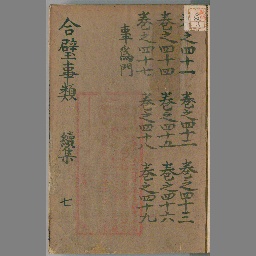 卷之四十一 卷之四十二 卷之四十三
卷之四十四 卷之四十五 卷之四十六
卷之四十七 卷之四十八 卷之四十九
事為門
合璧事類 續集 七